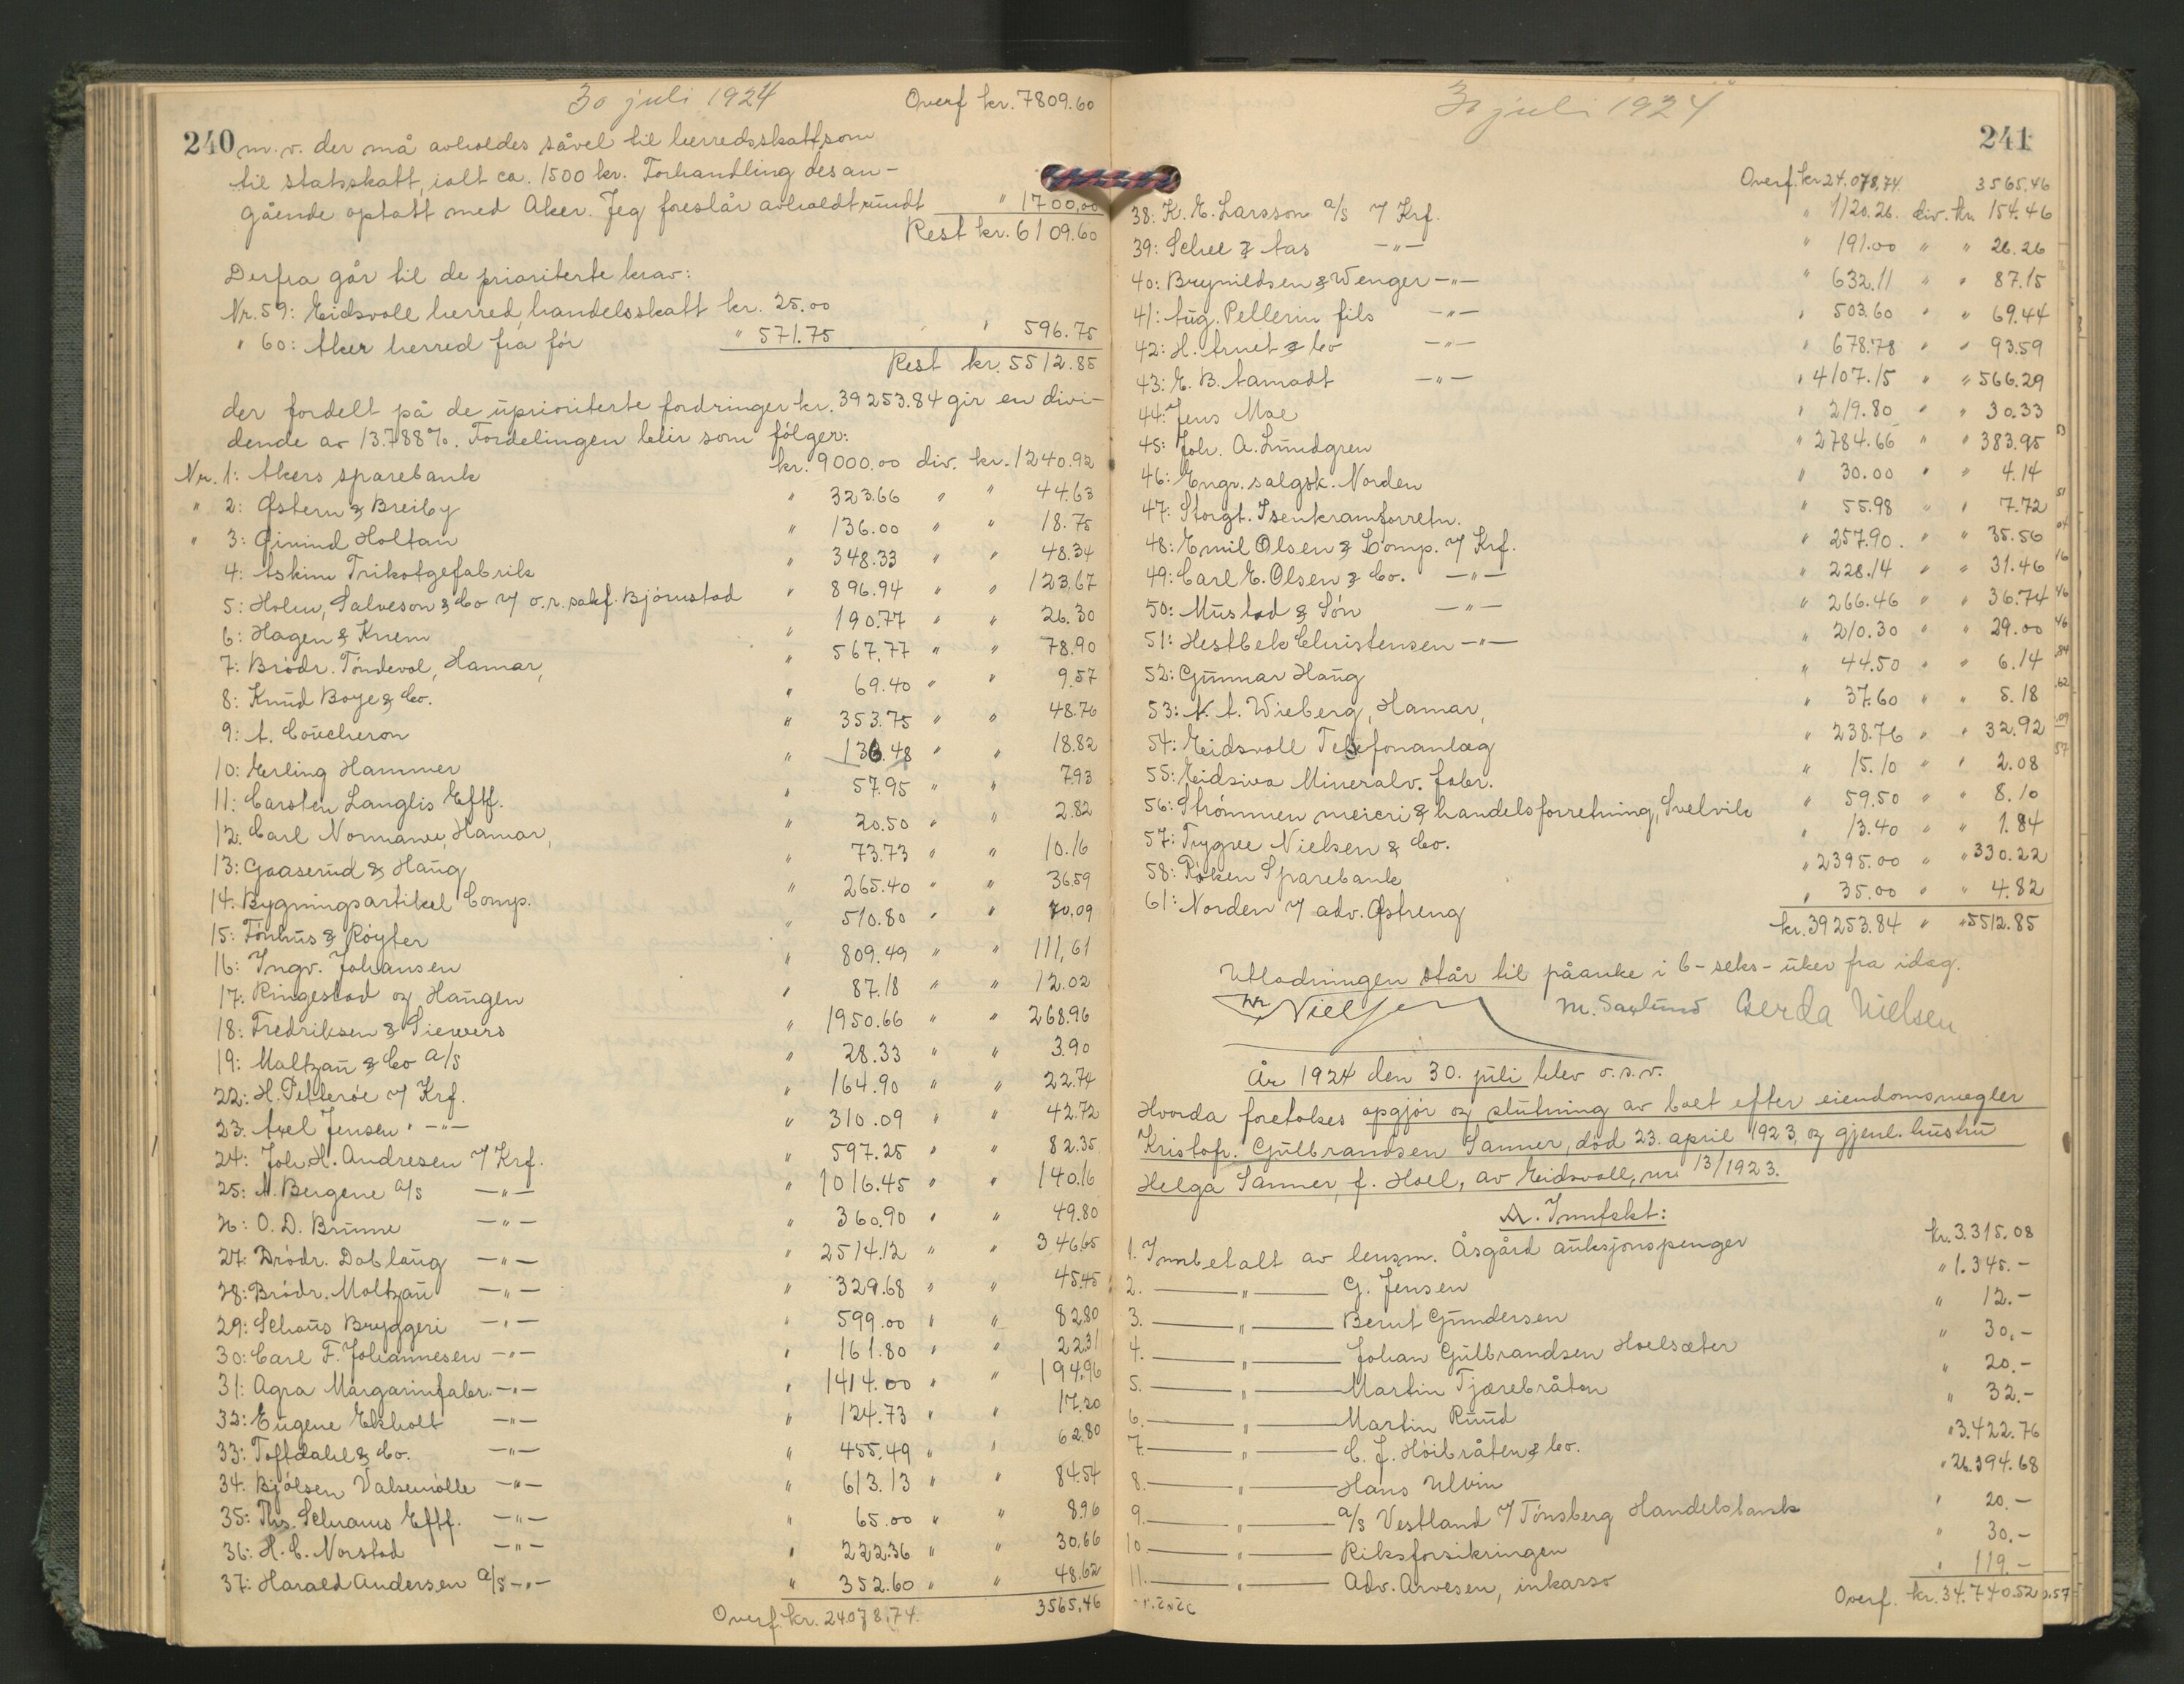 30 juli 1924 Overf kr. 7809.60
240 m.v. der må avholdes såvel til herredsskatt som
til statsskatt, ialt ca. 1500 kr. Forhandling desan-
gående optatt med Aker. Jeg foreslår avholdt rundt " 1700,00
Rest kr. 6109.60
Derfra går til de prioriterte krav:
Nr. 59: Eidsvoll herred, handelsskatt kr. 25.00
" 60: Aker herred fra før " 571.75 " 596.75
Rest kr. 5512.85
der fordelt på de uprioriterte fordringer kr. 39253.84 gir en divi-
dende av 13.788%. Fordelingen blir som følger:
Nr. 1: Akers sparebank kr. 9000.00 div. kr. 1240.92
" 2: Østern & Breiby " 323.66 " " 44.63
" 3: Øivind Holtan " 136.00 " " 18.75
4: Askim Trikotgefabrik " 348.33 " " 48.34
5: Holm, Salveson & Co v/ o.r. sakf. Bjørnstad " 896.94 " " 123.67
6: Hagen & Knem " 190.77 " " 26.30
7: Brødr. Tøndevol, Hamar, " 567.77 " " 78.90
8: Knud Boye & Co. " 69.40 " " 9.57
9: A. Coucheron " 353.75 " " 48.76
10: Erling Hammer " 136.48 " " 18.82
11: Carsten Langlis Eftf. " 57.95 " " 7.93
12. Carl Normann, Hamar, " 20.50 " " 2.82
13: Gaaserud & Haug " 73.73 " " 10.16
14. Bygningsartikel Comp. " 265.40 " " 36.59
15: Fønhus & Røyter " 510.80 " " 70.09
16: Ingv. Johansen " 809.49 " " 111,61
17: Ringestad og Haugen " 87.18 " " 12.02
18: Fredriksen & Siewers " 1950.66 " " 268.96
19: Maltzau & Co a/s " 28.33 " " 3.90
22: H. Petterøe v/ Krf. " 164.90 " " 22.74
23: Axel Jensen -"- " 310.09 " " 42.72
24: Joh. H. Andresen v/ Krf. " 597.25 " " 82.35
25: N. Bergene a/s -"- " 1016.45 " " 140.16
26: O. D. Brunne -"- " 360.90 " " 49.80
27: Brødr. Doblaug -"- " 2514.12 " " 346,65
28: Brødr. Moltzau -"- " 329.68 " " 45.45
29: Schous Bryggeri -"- " 599.00 " " 82.80
30: Carl F. Johannesen -"- " 161.80 " " 22.31
31: Agra Margarinfabr. -"- " 1414.00 " " 194.96
32: Eugene Ekholt -"- " 124.73 " " 17.20
33: Toftdahl & Co. -"- " 455.49 " " 62.80
34. Bjølsen Valsemølle -"- " 613.13 " " 84.54
35: Ths. Schrams Eftf. -"- " 65.00 " " 8.96
36: H. C. Norstad -"- " 222.36 " " 30.66
37: Harald Andersen a/s -"- " 352.60 " " 48.62
Overf. kr. 24078,74. 3565,46
30 juli 1924
241
Overf. kr 24.078,74 3565,46
38: K. E. Larsson a/s v/ Krf. " 1120.26. div. kr. 154.46
39: Schee & Aas -"- " 191.00 " " 26.26
40: Brynildsen & Wenger -"- " 632.11 " " 87.15
41: Aug. Pellerin fils -"- " 503.60 " " 69.44
42: H. Arnet & Co -"- " 678.78 " " 93.59
43: E. B. Aamodt -"- " 4107.15 " " 566.29
44: Jens Moe " 219.80 " " 30.33
45: Joh. A. Lundgren " 2784.66 " " 383.95
46: Engr. salgsk. Norden " 30.00 " " 4.14
47: Storgt. Isenkramforretn. " 55.98 " " 7.72
48: Emil Olsen & Comp. v/ Krf. " 257.90. " " 35.56
49: Carl E. Olsen & Co. -"- " 228.14 " " 31.46
50: Mustad & Søn -"- " 266.46 " " 36.74
51: Hestbek Christensen -"- " 210.30 " " 29.00
52: Gunnar Haug " 44.50 " " 6.14
53: A. A. Wieberg, Hamar, " 37.60 " " 5.18
54: Eidsvoll Telefonanlæg " 238.76 " " 32.92
55: Eidsiva Mineralv. fabr. " 15.10 " " 2.08
56: Strømmen meieri & handelsforretning, Svelvik " 59.50 " " 8.10
57: Trygve Nielsen & Co. " 13.40 " " 1.84
58: Røken Sparebank " 2395.00 " " 330.22
61: Norden v/ adv. Østreng " 35.00 " " 4.82
kr. 39253.84 " " 5512.85
Utlodningen står til påanke i 6-seks-uker fra idag.
Nielsen M. Saxlund Gerda Nielsen
År 1924 den 30. juli blev o.s.v.
Hvorda foretokes opgjør og slutning av boet efter eiendomsmegler
Kristofr. Gulbrandsen Sanner, død 23. april 1923, og gjenl. hustru
Helga Sanner, f. Hoel, av Eidsvoll, nr. 13/1923.
A. Inntekt:
1. Innbetalt av lensm. Åsgård auksjonspenger kr. 3.315.08
2. —"— G. Jensen " 1.345.-
3. —"— Bernt Gundersen " 12.-
4. —"— Johan Gulbrandsen Hoelsæter " 30.-
5. —"— Martin Tjærebråten " 20.-
6. —"— Martin Ruud " 32.-
7. —"— C. J. Høibråten & Co. " 3.422.76
8. —"— Hans Ulvin " 26.394.68
9. —"— a/s Vestland v/ Tønsberg Handelsbank " 20.-
10. —"— Riksforsikringen " 30.-
11. —"— Adv. Arvesen, inkasso " 119.-
Overf. kr. 34.740.52